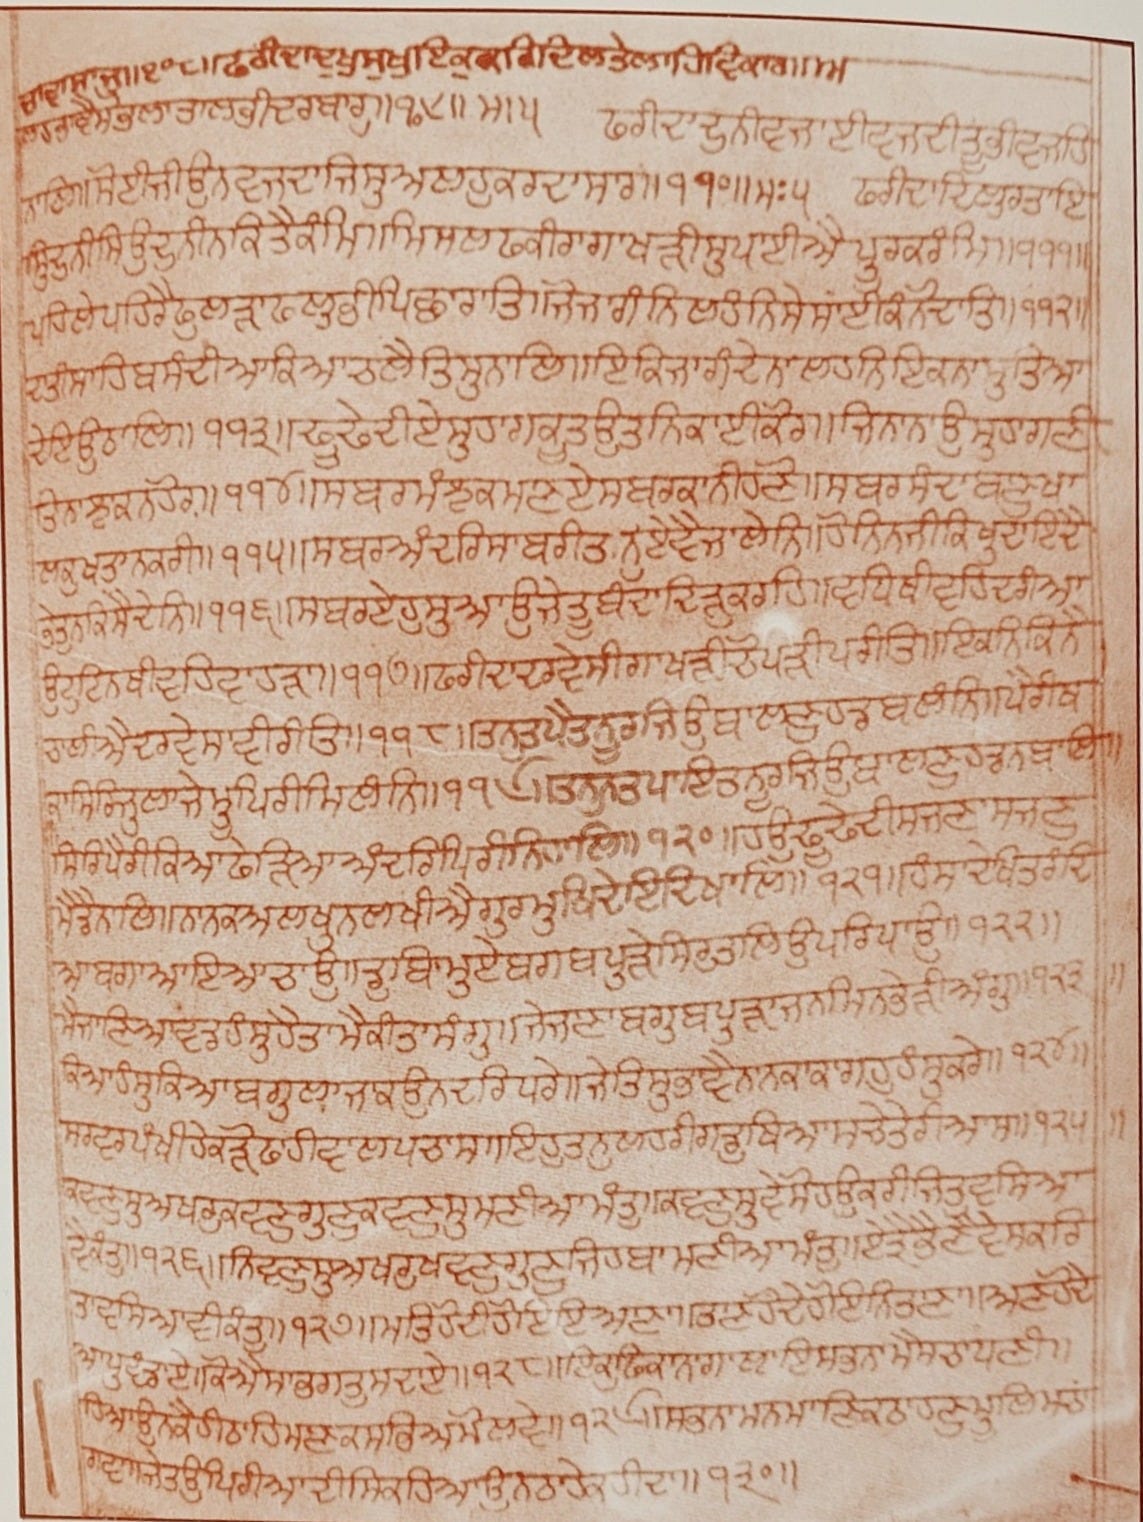 ਚਾਵਾਸਾਜੁ॥੧੦੮॥ਫਰੀਦਾਦੁਖੁਸੁਖੁਇਕੁਕਰਿਦਿਲਤੇਲਾਹਿਵਿਕਾਰੁ॥ਅ
ਲਹਭਾਵੈਸੋਭਲਾਤਾਂਲਭੀਦਰਬਾਰੁ॥੧੦੯॥ਮਃ੫ ਫਰੀਦਾਦੁਨੀਵਜਾਈਵਜਦੀਤੂੰਭੀਵਜਹਿ
ਨਾਲਿ॥ਸੋਈਜੀਉਨਵਜਦਾਜਿਸੁਅਲਹੁਕਰਦਾਸਾਰ॥੧੧੦॥ਮਃ੫ ਫਰੀਦਾਦਿਲੁਰਤਾਇ
ਸੁਦੁਨੀਸਿਉਦੁਨੀਨਕਿਤੈਕੰਮਿ॥ਮਿਸਲਫਕੀਰਾਗਾਖੜੀਸੁਪਾਈਐਪੂਰਕਰੰਮਿ॥੧੧੧॥
ਪਹਿਲੇਪਹਿਰੈਫੁਲੜਾਫਲੁਭੀਪਿਛਾਰਾਤਿ॥ਜੋਜਾਗੰਨਿਲਹੰਨਿਸੇਸਾਂਈਕੰਨੋਦਾਤਿ॥੧੧੨॥
ਦਾਤੀਸਾਹਿਬਸੰਦੀਆਕਿਆਚਲੈਤਿਸੁਨਾਲਿ॥ਇਕਿਜਾਗੰਦੇਨਾਲਹਨਿਇਕਨਾਸੁਤਿਆ
ਦੇਇਉਠਾਲਿ॥੧੧੩॥ਢੂਢੇਦੀਏਸੁਹਾਗਕੂਤਉਤਨਿਕਾਈਕੋਰ॥ਜਿਨਾਨਾਉਸੁਹਾਗਣੀ
ਤਿਨਾਝਾਕਨਹੋਰ॥੧੧੪॥ਸਬਰਮੰਝਕਮਾਣਏਸਬਰਕਾਨੀਹਣੋ॥ਸਬਰਸੰਦਾਬਾਣੁਖਾ
ਲਕੁਖਤਾਨਕਰੀ॥੧੧੫॥ਸਬਰਅੰਦਰਿਸਾਬਰੀਤਨੁਏਵੈਜਾਲੇਨਿ॥ਹੋਨਿਨਜੀਕਿਖੁਦਾਇਦੈ
ਭੇਤੁਨਕਿਸੈਦੇਨਿ॥੧੧੬॥ਸਬਰਏਹੁਸੁਆਉਜੇਤੂਬੰਦਾਦਿੜੁਕਰਹਿ॥ਵਧਿਥੀਵਹਿਦਰੀਆ
ਉਟੁਟਿਨਥੀਵਹਿਵਾਹੜਾ॥੧੧੭॥ਫਰੀਦਾਦਰਵੇਸੀਗਾਖੜੀਚੋਪੜੀਪਰੀਤਿ॥ਇਕਨਿਕਿਨੈ
ਚਾਲੀਐਦਰਵੇਸਾਵੀਰੀਤਿ॥੧੧੮॥ਤਨੁਤਪੈਤਨੂਰਜਿਉਬਾਲਣੁਹਡਬਲੰਨਿ॥ਪੈਰੀਥ
ਕਾਂਸਿਰਿਜੁਲਾਂਜੇਮੂਪਿਰੀਮਿਲੰਨਿ॥੧੧੯॥ਤਨੁਨਤਪਾਇਤਨੂਰਜਿਉਬਾਲਣੁਹਡਨਬਾਲਿ॥
ਸਿਰਿਪੈਰੀਕਿਆਫੇੜਿਆਅੰਦਰਿਪਿਰੀਨਿਹਾਲਿ॥੧੨੦॥ਹਉਢੂਢੇਦੀਸਜਣਾਸਜਣੁ
ਮੈਡੈਨਾਲਿ॥ਨਾਨਕਅਲਖੁਨਲਖੀਐਗੁਰਮੁਖਿਦੇਇਦਿਖਾਲਿ॥੧੨੧॥ਹੰਸਾਦੇਖਿਤਰੰਦਿ
ਆਬਗਾਆਇਆਚਾਉ॥ਡੁਬਿਮੁਏਬਗਬਪੁੜੇਸਿਰੁਤਲਿਉਪਰਿਪਾਉ॥੧੨੨॥
ਮੈਜਾਣਿਆਵਡਹੰਸੁਹੈਤਾਮੈਕੀਤਾਸੰਗੁ॥ਜੇਜਾਣਾਬਗੁਬਪੁੜਾਜਨਮਿਨਭੇੜੀਅੰਗੁ॥੧੨੩॥
ਕਿਆਹੰਸੁਕਿਆਬਗੁਲਾਜਾਕਉਨਦਰਿਧਰੇ॥ਜੇਤਿਸੁਭਾਵੈਨਾਨਕਾਕਾਗਹੁਹੰਸੁਕਰੇ॥੧੨੪॥
ਸਰਵਰਪੰਖੀਹੇਕੜੋਫਾਹੀਵਾਲਪਚਾਸ॥ਇਹੁਤਨੁਲਹਰੀਗਡੁਥਿਆਸਚੇਤੇਰੀਆਸ॥੧੨੫॥
ਕਵਣੁਸੁਅਖਰੁਕਵਣੁਗੁਣੁਕਵਣੁਸੁਮਣੀਆਮੰਤੁ॥ਕਵਣੁਸੁਵੇਸੋਹਉਕਰੀਜਿਤੁਵਸਿਆ
ਵੈਕੰਤੁ॥੧੨੬॥ਨਿਵਣੁਸੁਅਖਰੁਖਵਣੁਗੁਣੁਜਿਹਬਾਮਣੀਆਮੰਤੁ॥ਏਤ੍ਰੈਭੈਣੇਵੇਸਕਰਿ
ਤਾਂਵਸਿਆਵੀਕੰਤੁ॥੧੨੭॥ਮਤਿਹੋਦੀਹੋਇਇਆਣਾ॥ਤਾਣਹੋਦੇਹੋਇਨਿਤਾਣਾ॥ਅਣਹੋਦੈ
ਆਪੁਵੰਡਾਏ॥ਕੋਐਸਾਭਗਤੁਸਦਾਏ॥੧੨੮॥ਇਕੁਫਿਕਾਨਗਾਲਾਇਸਭਨਾਮੈਸਚਾਧਣੀ॥
ਹਿਆਉਨਕੈਹੀਠਾਹਿਮਾਣਕਸਭਿਅਮੋਲਵੇ॥੧੨੯॥ਸਭਨਾਮਨਮਾਣਿਕਠਾਹਣੁਮੂਲਿਮਚਾਂ
ਗਵਾ॥ਜੇਤਉਪਿਰੀਆਦੀਸਿਕਹਿਆਉਨਠਾਹੇਕਹੀਦਾ॥੧੩੦॥